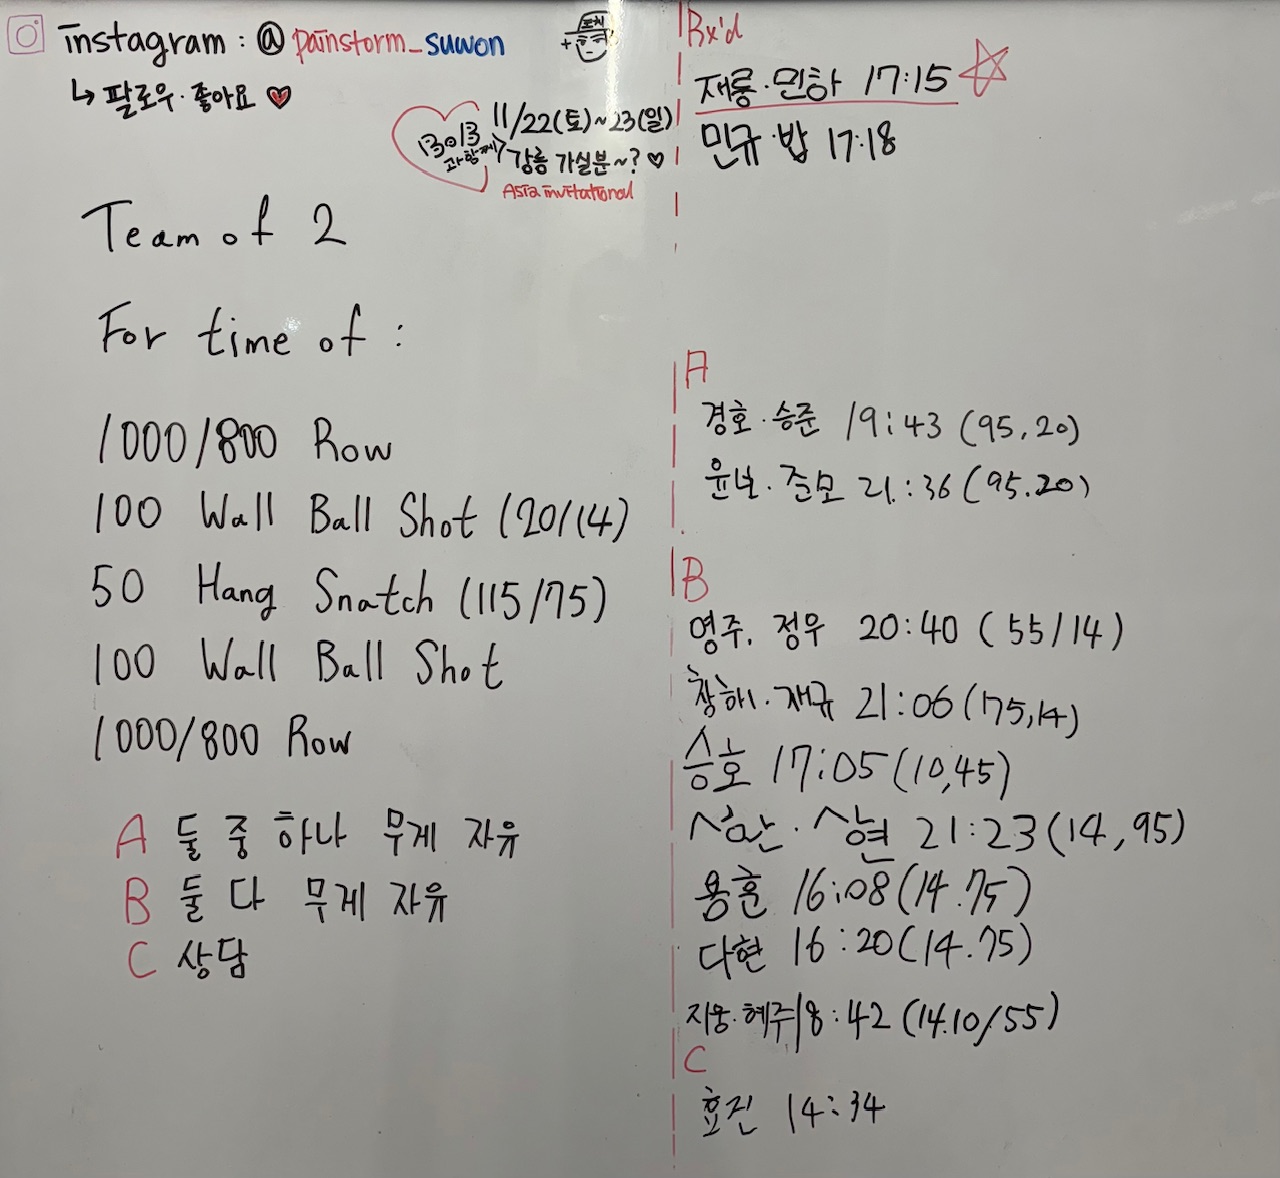 instagram : @painstorm_suwon
↳ 팔로우·좋아요 ♥
코치
11/22(토)~23(일)
강릉 가실분~? ♡
Asia invitational
Team of 2
For time of :
1000/800 Row
100 Wall Ball Shot (20/14)
50 Hang Snatch (115/75)
100 Wall Ball Shot
1000/800 Row
A 둘 중 하나 무게 자유
B 둘 다 무게 자유
C 상담
Rx'd
재룡·민하 17:15 ☆
민규·밥 17:18
A
경호·승준 19:43 (95.20)
윤보·준모 21:36 (95.20)
B
영주. 정우 20:40 (55/14)
창해·재규 21:06 (75,14)
승호 17:05 (10,45)
성완·상현 21:23 (14,95)
용훈 16:08 (14.75)
다현 16:20 (14.75)
지웅·혜주 18:42 (14.10/55)
C
효진 14:34